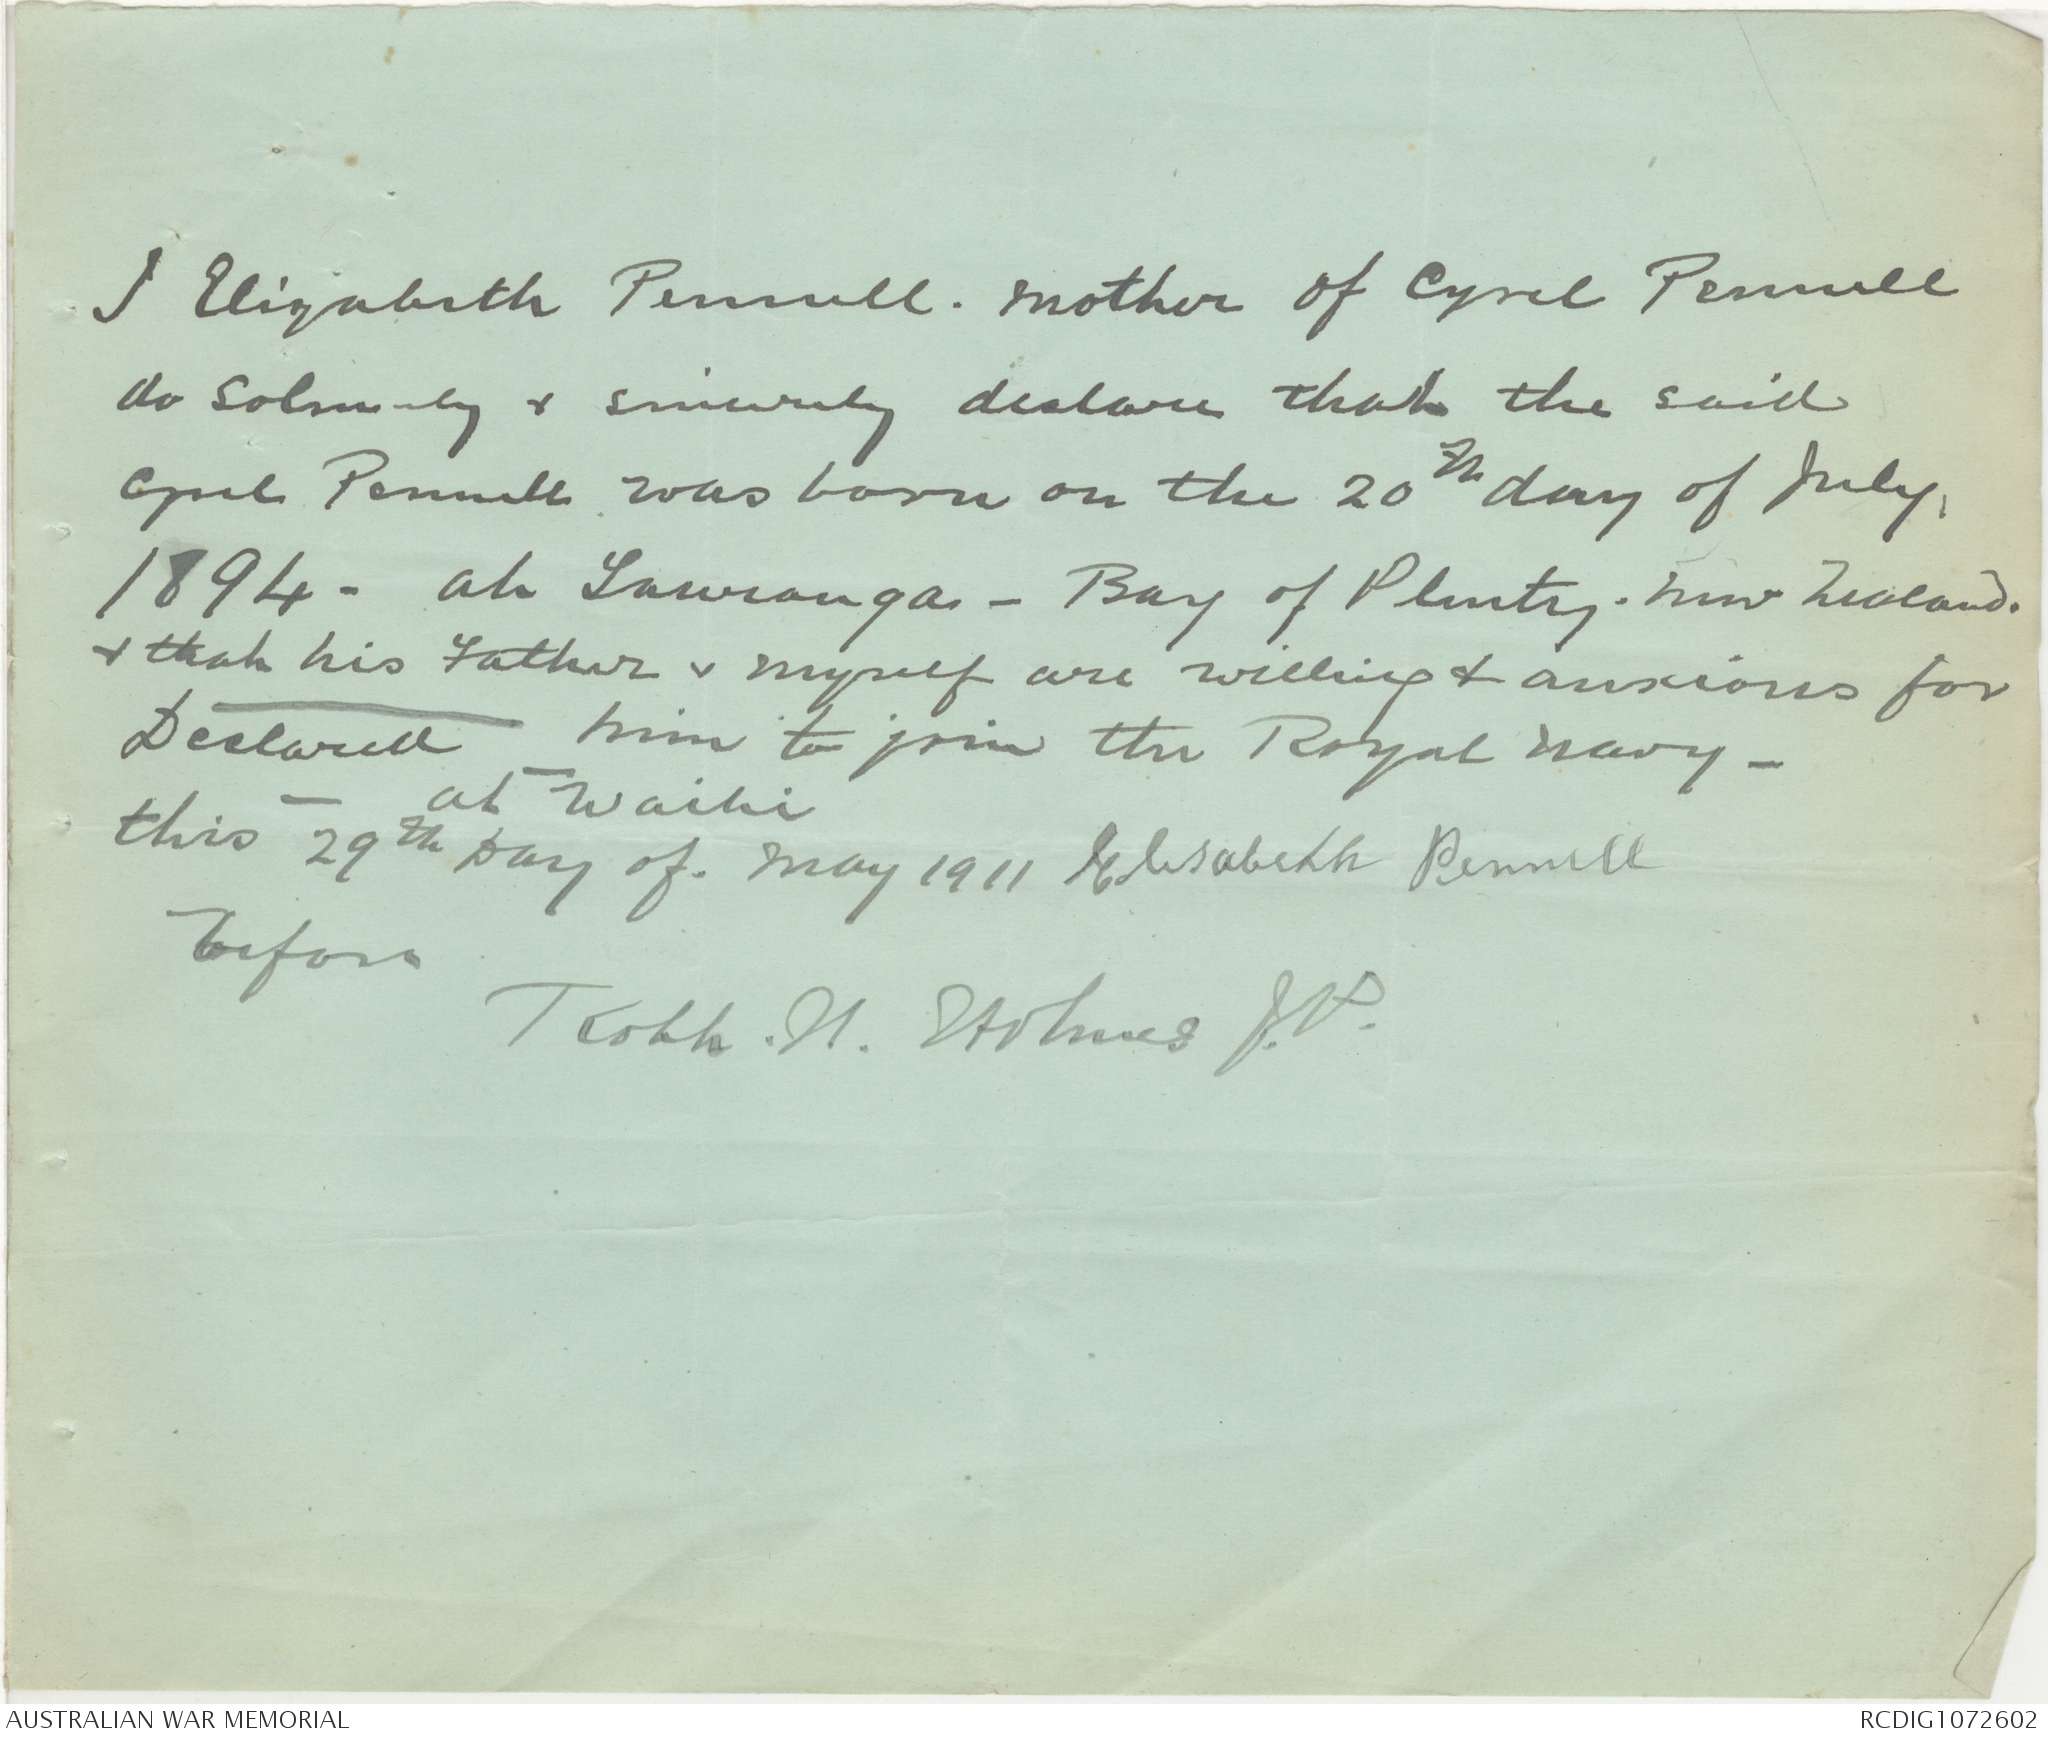 I Elizabeth Pennell. mother of Cyril Pennell
do Solmnely & sincerely declare that the said
Cyril Pennell was born on the 20th day of July,
1894 - at Tauranga - Bay of Plenty. New Zealand.
& that his Father & myself are willing & anxious for
Declared him to join the Royal Navy -
at Waihi
this 29th Day of. May 1911 Elisabeth Pennell
before
Robt. N. Holmes J.P.
AUSTRALIAN WAR MEMORIAL
RCDIG1072602